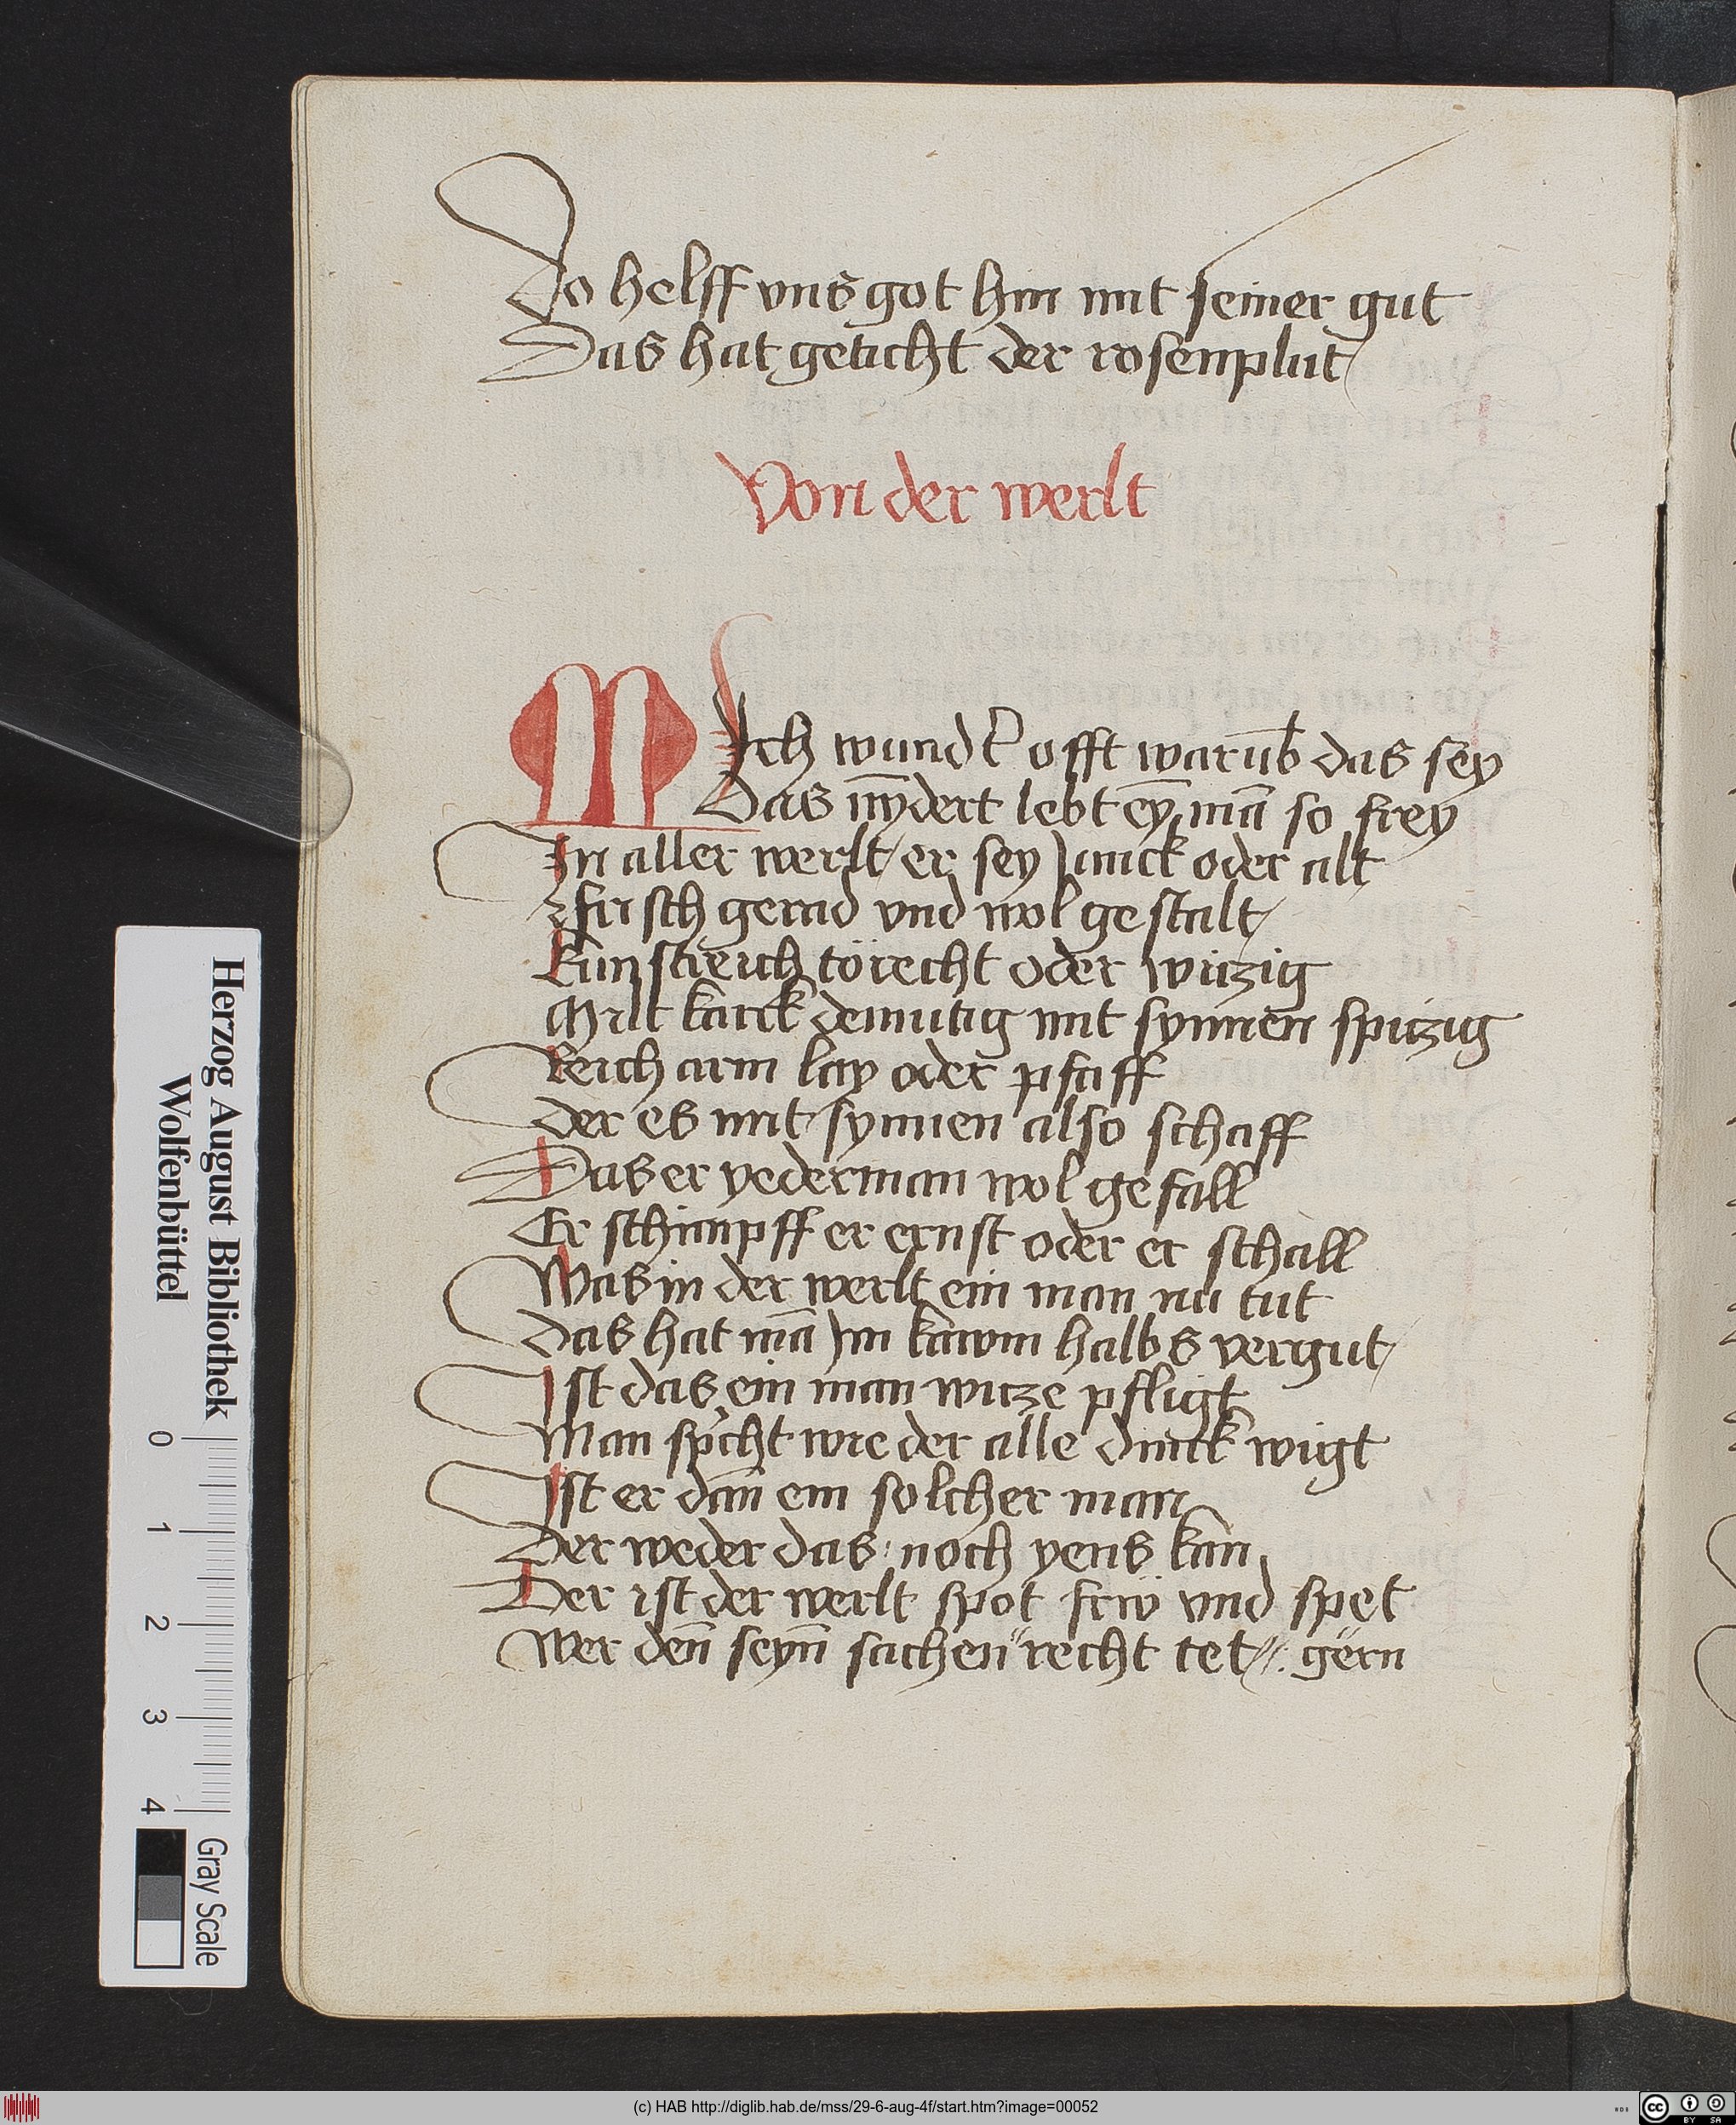 Do helff vns got hin mit seiner gut
Das hat geticht der rosenplut
Von der werlt
Mich wundt͛ offt warūb das sey
Das nȳdert lebt eȳ mā so frey
In aller werlt er sey Junck oder alt
frisch gerad vnd wol gestalt
kunstreich törecht oder witzig
Milt karck demutig mit synnen spitzig
Reich arm lay oder pfaff
der es mit synnen also schaff
Das er yederman wol gefall
Er schimpff er ernst oder er schall
Was in der werlt ein man nu tut
das hat mā Jm kawm halbs vergut
Ist das ein man witze pfligt
Man sp̓cht wie der alle dinck wigt
Ist er dān ein solcher man
Der weder das noch yens kan
Der ist der werlt spot frw̎ vnd spet
Wer den̄ seyn̄ sachen "recht tet //: gern
Herzog August Bibliothek
Wolfenbüttel
0 1 2 3 4
Gray Scale
(c) HAB http://diglib.hab.de/mss/29-6-aug-4f/start.htm?image=00052
cc BY SA